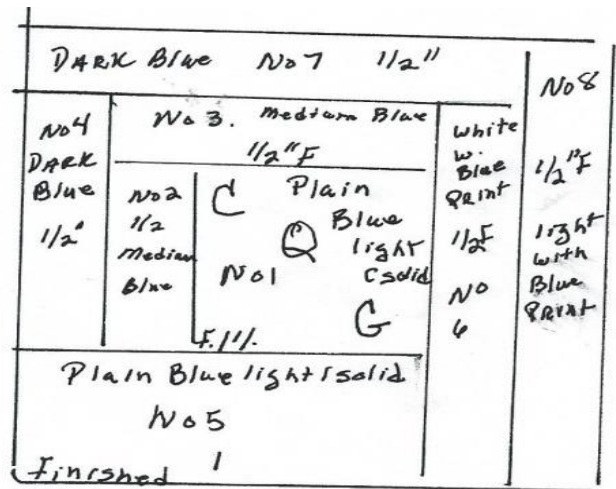 DARK Blue No7 1/2"
No8
1/2"F
light
with
Blue
PRINT
No4
DARK
Blue
1/2"
No 3. Medium Blue
1/2"F
White
w.
Blue
PRINT
1/2F
No
6
No2
1/2
Medium
Blue
C
Q
G
Plain
Blue
light
(solid
No1
F.1".
Plain Blue light (solid
No5
1
Finished